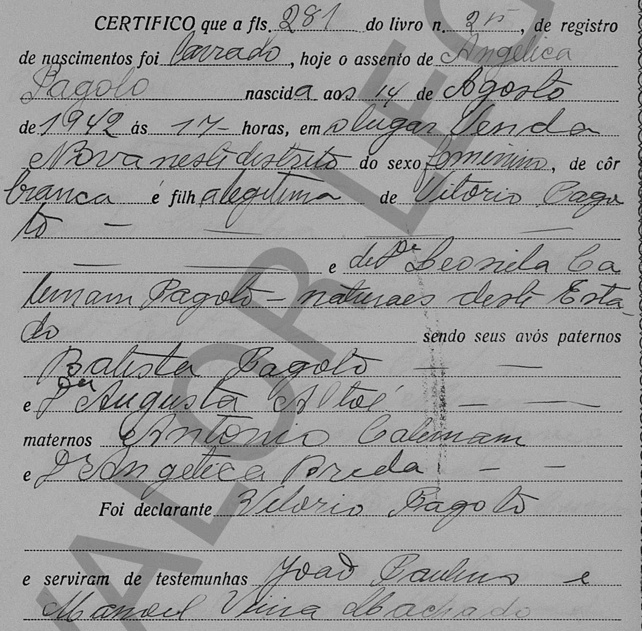 CERTIFICO que a fls. 281 do livro n. 2, de registro
de nascimentos foi lavrado, hoje o assento de Angelica
Pagoto nascida aos 14 de Agosto
de 1942 ás 17- horas, em o lugar Venda
Nova neste distrito do sexo feminino, de côr
branca é filha legitima de Vitorio Pago
to - — — —
— — e de Da Leonila Ca
limam Pagoto - naturaes deste Esta-
do sendo seus avós paternos
Batista Pagoto — —
e Da Augusta Altoé - — —
maternos Antonio Calimam
e Da Angelica Breda — —
Foi declarante Vitorio Pagoto
e serviram de testemunhas João Paulino e
Manoel Vieira Machado
VALOR LEG